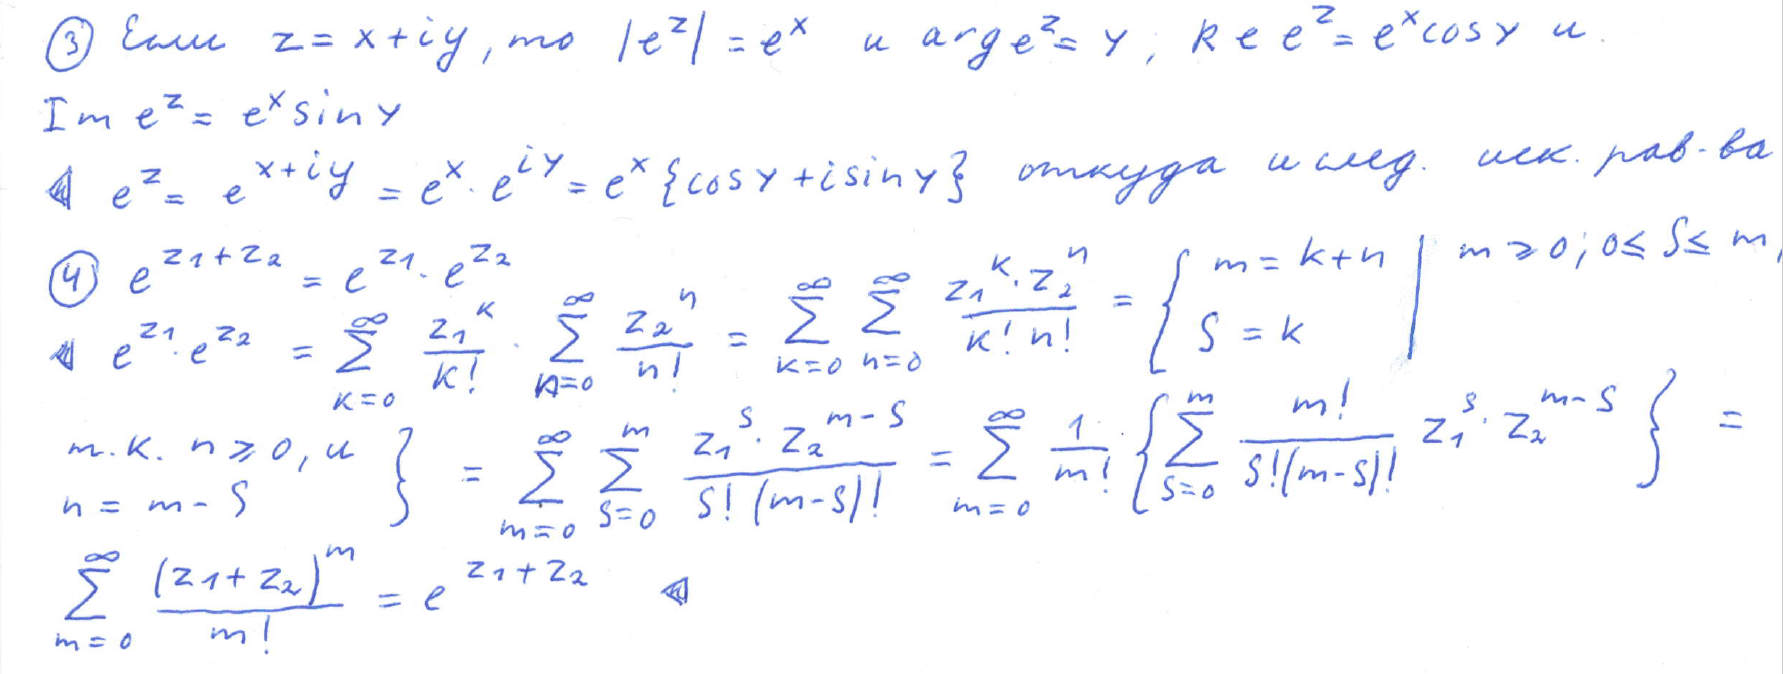 ③ Если z = x+iy, то |e^z| = e^x и arg e^z = y; Re e^z = e^x cos y и
Im e^z = e^x sin y
◀ e^z = e^{x+iy} = e^x · e^{iy} = e^x {cos y + i sin y} откуда и след. иск. рав-ва
④ e^{z_1+z_2} = e^{z_1} · e^{z_2}
◀ e^{z_1} · e^{z_2} = \sum_{k=0}^{∞} \frac{z_1^k}{k!} · \sum_{n=0}^{∞} \frac{z_2^n}{n!} = \sum_{k=0}^{∞} \sum_{n=0}^{∞} \frac{z_1^k · z_2^n}{k! n!} = { m = k+n, S = k | m ≥ 0; 0 ≤ S ≤ m,
т.к. n ≥ 0, и n = m-S } = \sum_{m=0}^{∞} \sum_{S=0}^{m} \frac{z_1^S · z_2^{m-S}}{S! (m-S)!} = \sum_{m=0}^{∞} \frac{1}{m!} { \sum_{S=0}^{m} \frac{m!}{S!(m-S)!} z_1^S · z_2^{m-S} } =
\sum_{m=0}^{∞} \frac{(z_1+z_2)^m}{m!} = e^{z_1+z_2} ◀